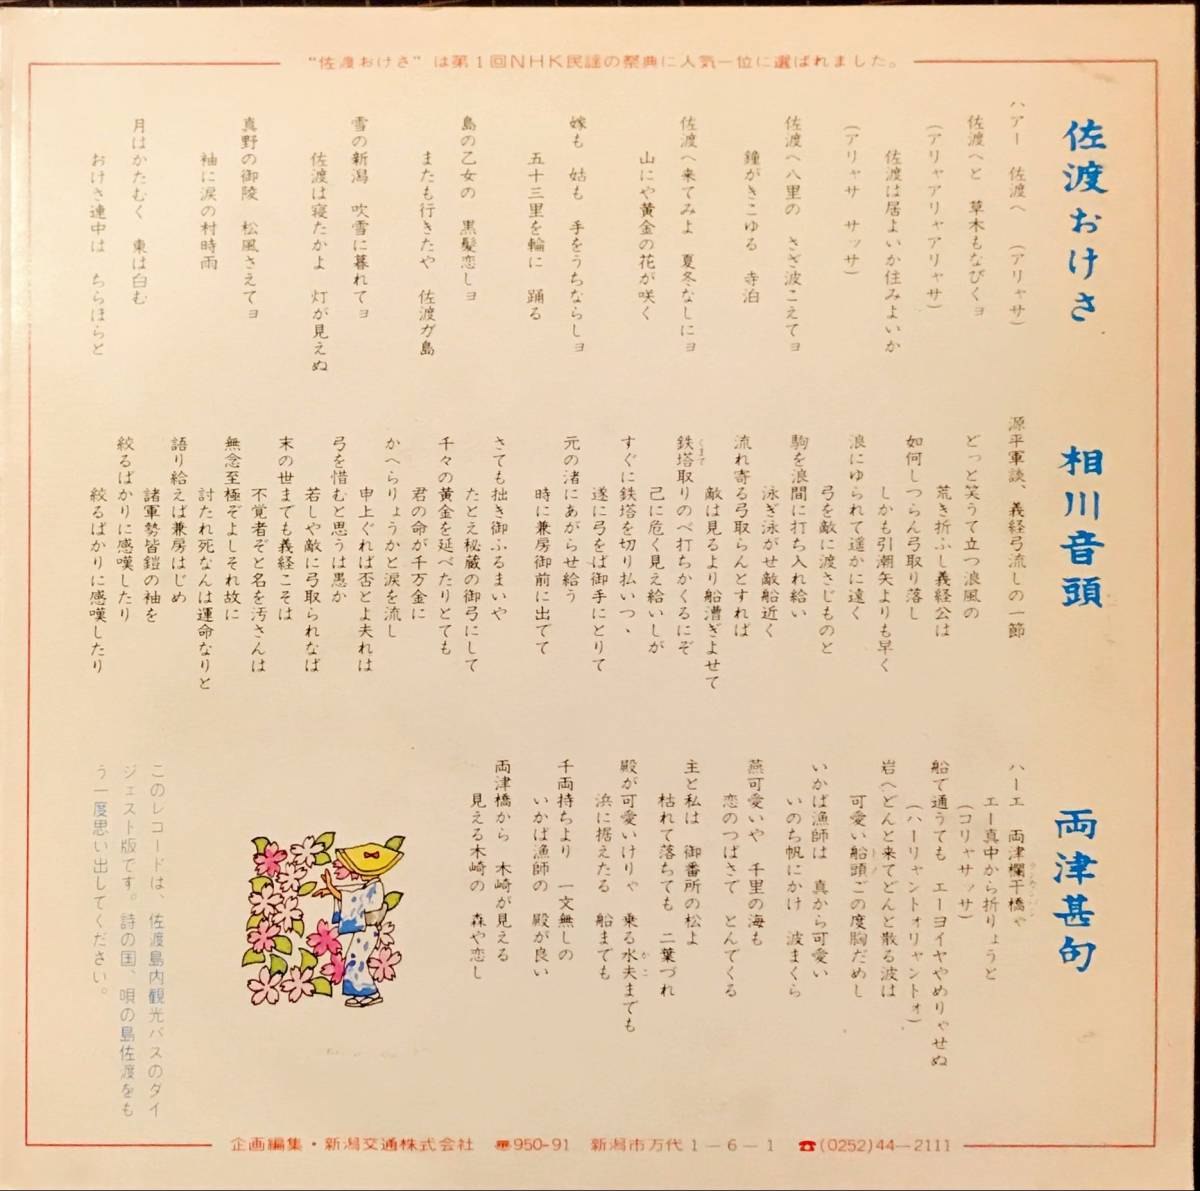 “佐渡おけさ”は第1回NHK民謡の祭典に人気一位に選ばれました。
佐渡おけさ
ハアー 佐渡へ (アリャサ)
佐渡へと 草木もなびくヨ
(アリャアリャアリャサ)
佐渡は居よいか住みよいか
(アリャサ サッサ)
佐渡へ八里の さざ波こえてヨ
鐘がきこゆる 寺泊
佐渡へ来てみよ 夏冬なしにヨ
山にや黄金の花が咲く
嫁も 姑も 手をうちならしヨ
五十三里を輪に 踊る
島の乙女の 黒髪恋しヨ
またも行きたや 佐渡が島
雪の新潟 吹雪に暮れてヨ
佐渡は寝たかよ 灯が見えぬ
真野の御陵 松風さえてヨ
袖に涙の村時雨
月はかたむく 東は白む
おけさ連中は ちらほらと
相川音頭
源平軍談、義経弓流しの一節
どっと笑うて立つ浪風の
荒き折ふし義経公は
如何しつらん弓取り落し
しかも引潮矢よりも早く
浪にゆられて遥かに遠く
弓を敵に渡さじものと
駒を浪間に打ち入れ給い
泳ぎ泳がせ敵船近く
流れ寄る弓取らんとすれば
敵は見るより船漕ぎよせて
鉄塔取りのべ打ちかくるにぞ
くまで
己に危く見え給いしが
すぐに鉄塔を切り払いつゝ
遂に弓をば御手にとりて
元の渚にあがらせ給う
時に兼房御前に出でて
さても拙き御ふるまいや
たとえ秘蔵の御弓にして
千々の黄金を延べたりとても
君の命が千万金に
かへらりょうかと涙を流し
申上ぐれば否とよ夫れは
弓を惜むと思うは愚か
若しや敵に弓取られなば
末の世までも義経こそは
不覚者ぞと名を汚さんは
無念至極ぞよしそれ故に
討たれ死なんは運命なりと
語り給えば兼房はじめ
諸軍勢皆鎧の袖を
絞るばかりに感嘆したり
絞るばかりに感嘆したり
両津甚句
ハーエ 両津欄干橋ゃ
エー真中から折りょうと
(コリャサッサ)
船で通うても エーヨイヤやめりゃせぬ
(ハーリャントォリャントォ)
岩へどんと来てどんと散る波は
可愛い船頭ごの度胸だめし
いかば漁師は 真から可愛い
いのち帆にかけ 波まくら
燕可愛いや 千里の海も
恋のつばさで とんでくる
主と私は 御番所の松よ
枯れて落ちても 二葉づれ
殿が可愛いけりゃ 乗る水夫までも
かこ
浜に据えたる 船までも
千両持ちより 一文無しの
いかば漁師の 殿が良い
両津橋から 木崎が見える
見える木崎の 森や恋し
このレコードは、佐渡島内観光バスのダイ
ジェスト版です。詩の国、唄の島佐渡をも
う一度思い出してください。
企画編集・新潟交通株式会社 〒950-91 新潟市万代1-6-1 ☎(0252)44-2111